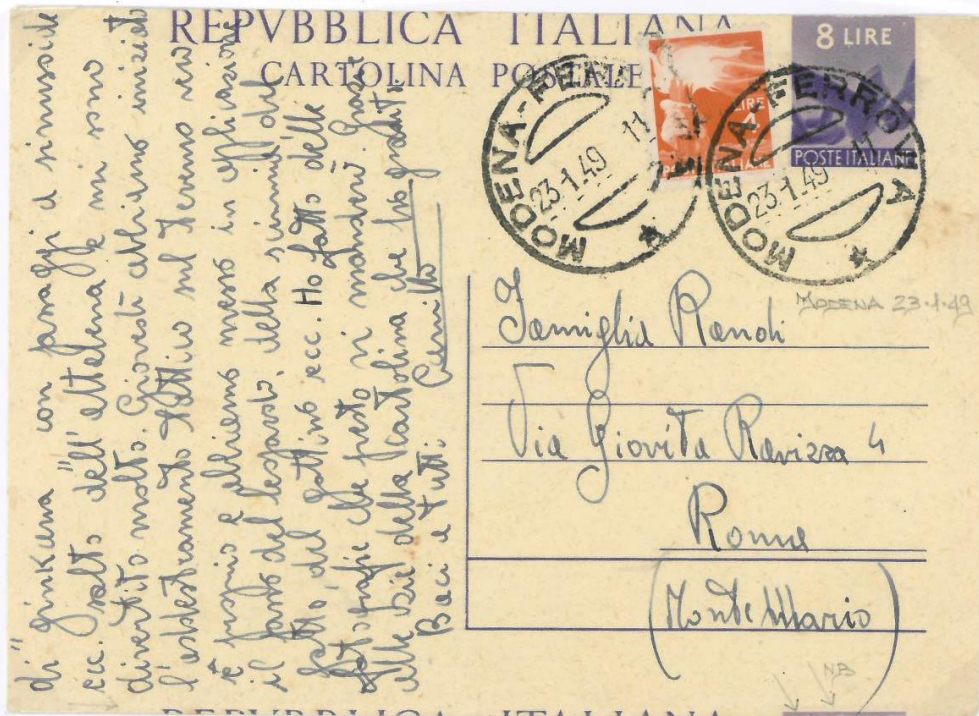 REPVBBLICA ITALIANA
CARTOLINA POSTALE
8 LIRE
POSTE ITALIANE
LIRE
4
MODENA-FERROVIA
23·1·49 11
MODENA-FERROVIA
23·1·49 11
MODENA 23·1·49
Famiglia Randi
Via Giovita Ravizza 4
Roma
(Monte Mario)
NB
di "ginkana" con passaggi
ecc. salto dell'altalena e mi sono
divertito molto. Giovedì abbiamo iniziato
l'addestramento tattico sul terreno
e abbiamo messo in
il passo del leopardo, della
gatto, del gattino ecc. Ho fatto delle
fotografie che presto vi manderò. Grazie
alla zia della cartolina che ho gradito
Baci a tutti Camillo
REPVBBLICA ITALIANA